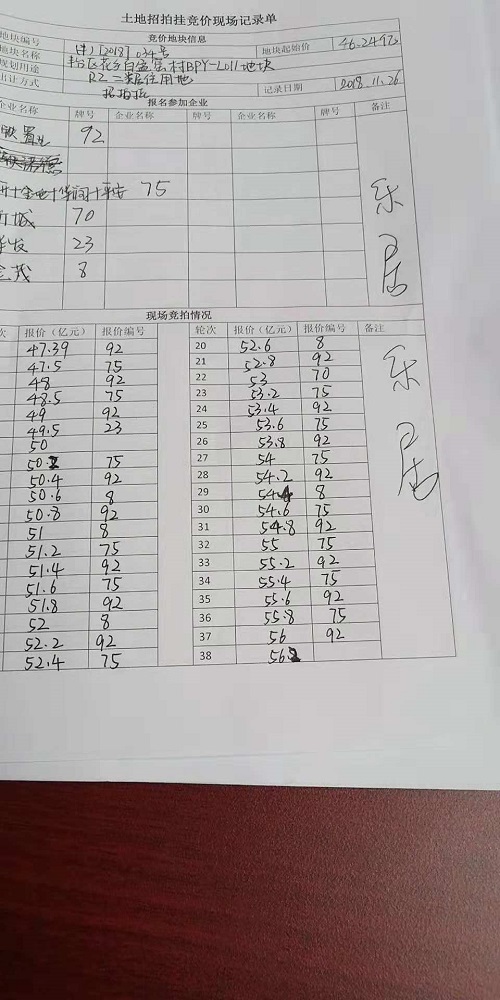 土地招拍挂竞价现场记录单
竞价地块信息
地块编号 [2018]034号 地块起始价 46.249亿
地块名称 丰台区花乡白盆窑村BPY-L011地块
规划用途 R2二类居住用地
出让方式 招拍挂 记录日期 2018.11.26
报名参加企业
企业名称 牌号 企业名称 牌号 企业名称 牌号 备注
置业 92
金地+华润+平安 75
城 70
发 23
茂 8
乐居
现场竞拍情况
次 报价（亿元） 报价编号 轮次 报价（亿元） 报价编号 备注
47.39 92 20 52.6 8
47.5 75 21 52.8 92
48 92 22 53 70
48.5 75 23 53.2 75
49 92 24 53.4 92
49.5 23 25 53.6 75
50 26 53.8 92
50.2 75 27 54 75
50.4 92 28 54.2 92
50.6 8 29 54.4 8
50.8 92 30 54.6 75
51 8 31 54.8 92
51.2 75 32 55 75
51.4 92 33 55.2 92
51.6 75 34 55.4 75
51.8 92 35 55.6 92
52 8 36 55.8 75
52.2 92 37 56 92
52.4 75 38 56.2
乐居